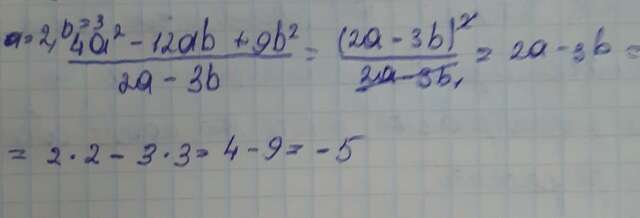 a=2, b=3
(4a² - 12ab + 9b²)/(2a - 3b) = (2a - 3b)²/(2a - 3b) = 2a - 3b =
= 2 · 2 - 3 · 3 = 4 - 9 = -5